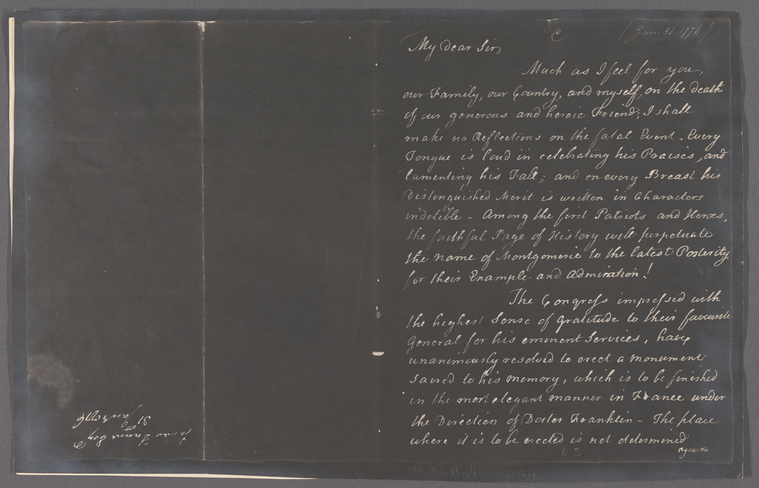 (Jan. 31 1776)
C
My Dear Sir,
Much as I feel for you,
our Family, our Country, and myself, on the death
of our generous and heroic Friend; I shall
make no Reflections on the fatal Event. Every
Tongue is loud in celebrating his Praises, and
lamenting his Fall; and on every Breast his
Distinguished Merit is written in Characters
indelible - Among the first Patriots and Heroes,
the faithful Page of History will perpetuate
the name of Montgomerie to the latest Posterity
for their Example and Admiration!
The Congress impressed with
the highest Sense of Gratitude to their favourite
General for his eminent Services, have
unanimously resolved to erect a monument
sacred to his memory, which is to be finished
in the most elegant manner in France under
the Direction of Doctor Franklin - The place
where it is to be erected is not determined
James Duane Esqr
31 Jan 1776